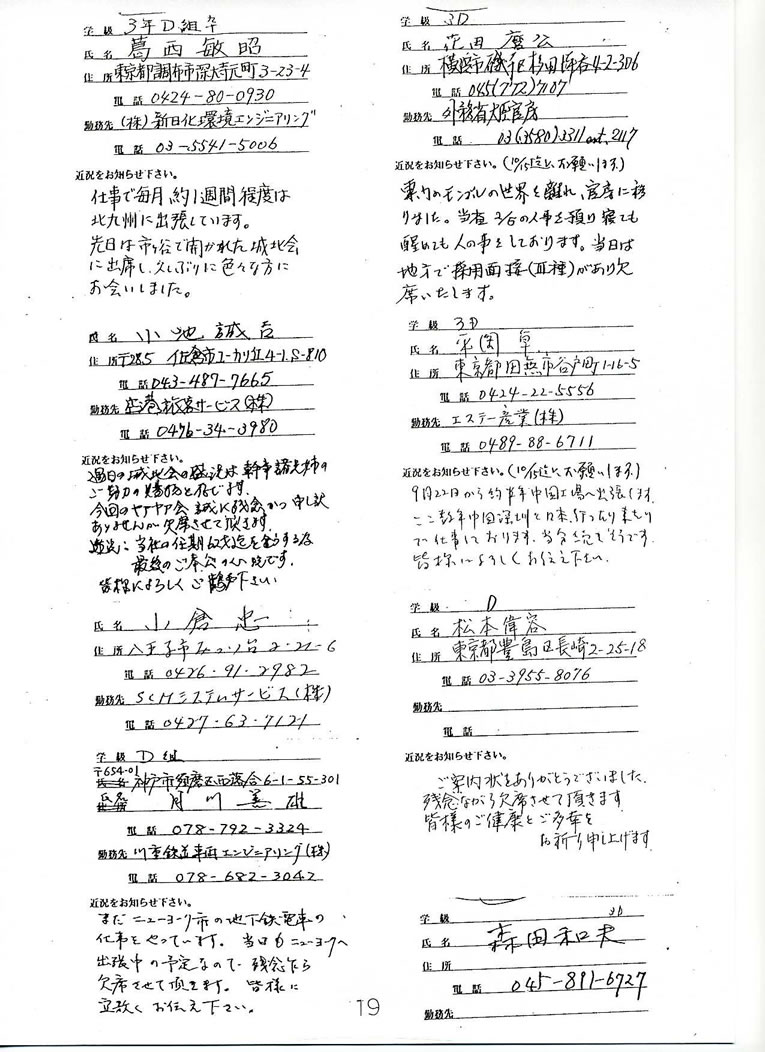 学級 3年D組
氏名 葛西敏昭
住所 東京都調布市深大寺元町3-23-4
電話 0424-80-0930
勤務先 (株)新日化環境エンジニアリング
電話 03-5541-5006
近況をお知らせ下さい。
仕事で毎月、約1週間程度は
北九州に出張しています。
先日は市ヶ谷で開かれた城北会
に出席し、久しぶりに色々な方に
お会いしました。
氏名 小池誠吉
住所 〒285 佐倉市ユーカリが丘4-1, S-810
電話 043-487-7665
勤務先 空港旅客サービス(株)
電話 0476-34-3980
近況をお知らせ下さい。
過日の城北会の盛況は幹事諸兄姉の
ご努力の賜物と存じます。
今回の 会 誠に残念かつ申し訳
ありませんが欠席させて頂きます。
当社の任期
最後のご奉公の です。
皆様によろしくご鶴声下さい
氏名 小倉忠一
住所 八王子市みつい台2-22-6
電話 0426-91-2982
勤務先 SCMシステムサービス(株)
電話 0427-63-7121
学級 D組
〒654-01
神戸市須磨区西落合6-1-55-301
氏名 月川善雄
電話 078-792-3324
勤務先 川重鉄道車両エンジニアリング(株)
電話 078-682-3042
近況をお知らせ下さい。
まだニューヨーク市の地下鉄電車の
仕事をやっています。当日もニューヨークへ
出張中の予定なので残念ながら
欠席させて頂きます。皆様に
宜敷くお伝え下さい。
学級 3D
氏名 花田麿公
住所 横浜市磯子区杉田坪呑4-2-306
電話 045(772)7107
勤務先 外務省大臣官房
03(3580)3311 ext. 2117
近況をお知らせ下さい。(10/15迄に、お願いします。)
東内のモンゴルの世界を離れ、官房に移
りました。当省 の人事を預り寝ても
醒めても人の事をしております。当日は
地方で採用面接(Ⅲ種)があり欠
席いたします。
学級 3D
氏名 平岡卓
住所 東京都田無市谷戸町1-16-5
電話 0424-22-5556
勤務先 エステー産業(株)
電話 0489-88-6711
近況をお知らせ下さい。(10/15迄に、お願いします。)
9月22日から約半年中国工場へ出張します。
ここ数年中国深圳と日本、行ったり来たり
で仕事しております。当分続きそうです。
皆様によろしくお伝え下さい。
学級 D
氏名 松本偉容
住所 東京都豊島区長崎2-25-18
電話 03-3955-8076
勤務先
電話
近況をお知らせ下さい。
ご案内状をありがとうございました。
残念ながら欠席させて頂きます
皆様のご健康とご多幸を
お祈り申し上げます。
学級 3D
氏名 森田和夫
住所
電話 045-891-6727
勤務先
19